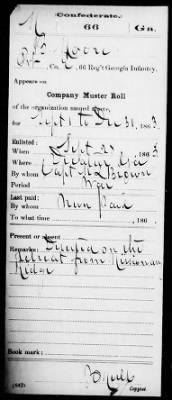 Confederate.
M 66 Ga.
Moore
Pvt , Co. , 66 Reg't Georgia Infantry.
Appears on
Company Muster Roll
of the organization named above,
for Sept 1 to Dec 31, 1863.
Enlisted:
When Sept 2, 1863
Where Decatur, Ga
By whom Capt Brown
Period War
Last paid:
By whom Never Paid
To what time , 186 .
Present or absent
Remarks: Deserted on the
retreat from Missionary
Ridge
Book mark:
(642) Copyist.